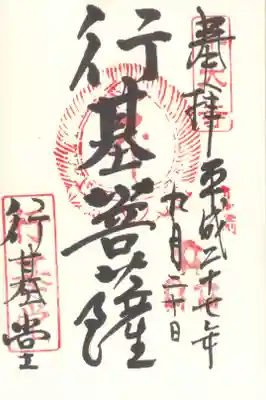 奉拝 平成二十七年
九月二十日
行基菩薩
行基堂